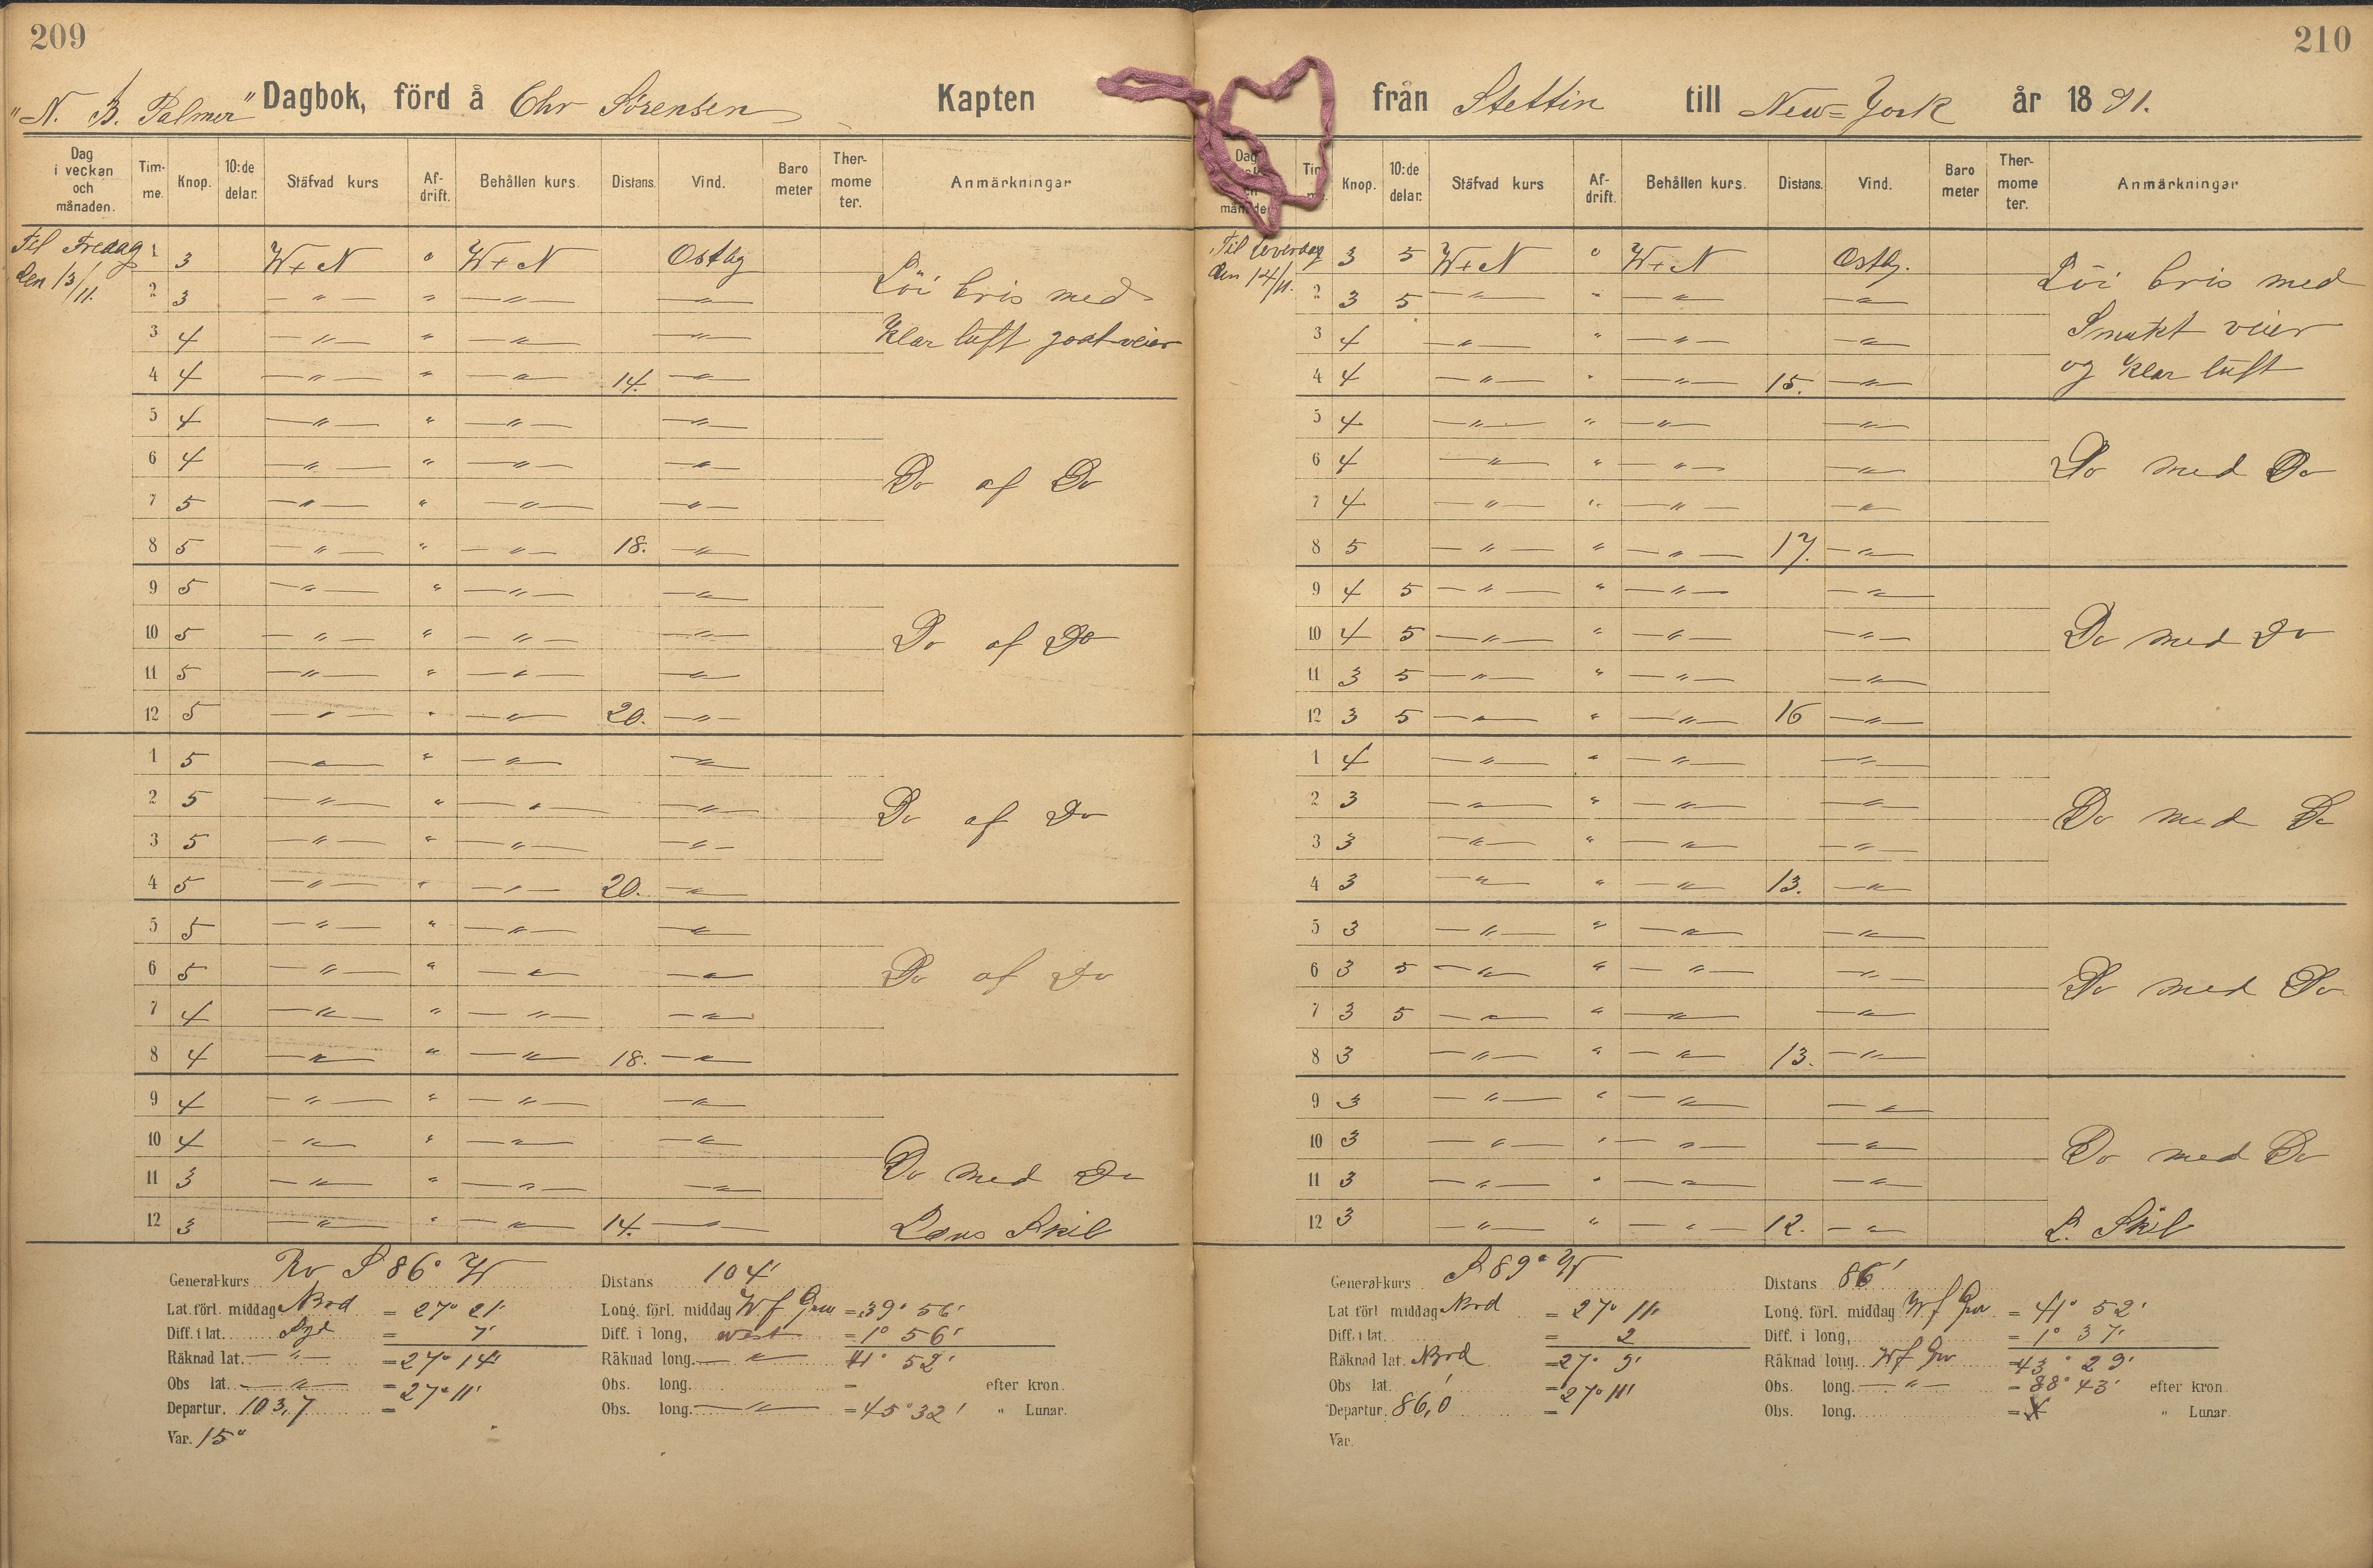 209
"N. B. Palmer" Dagbok, förd å Chr Sörensen Kapten
Dag i veckan och månaden. Tim-me. Knop. 10:de delar. Stäfvad kurs Af-drift. Behållen kurs. Distans. Vind. Baro meter Ther-mome ter. Anmärkningar
Til Fredag den 13/11.
1 3 W+N " W+N Ostlig
2 3 — " — " — " — — " —
3 4 — " — " — " — — " —
4 4 — " — " — " — 14. — " —
Löi bris med
klar luft godt veier
5 4 — " — " — " — — " —
6 4 — " — " — " — — " —
7 5 — " — " — " — — " —
8 5 — " — " — " — 18. — " —
Do af Do
9 5 — " — " — " — — " —
10 5 — " — " — " — — " —
11 5 — " — " — " — — " —
12 5 — " — " — " — 20. — " —
Do af Do
1 5 — " — " — " — — " —
2 5 — " — " — " — — " —
3 5 — " — " — " — — " —
4 5 — " — " — " — 20. — " —
Do af Do
5 5 — " — " — " — — " —
6 5 — " — " — " — — " —
7 4 — " — " — " — — " —
8 4 — " — " — " — 18. — " —
Do af Do
9 4 — " — " — " — — " —
10 4 — " — " — " — — " —
11 3 — " — " — " — — " —
12 3 — " — " — " — 14. — " —
Do med Do
Læns Skib
General-kurs Rv S 86° W Distans 104'
Lat. förl. middag Nord = 27° 21' Long. förl. middag W. f Grw = 39° 56'
Diff. i lat. Syd = 7' Diff. i long, west = 1° 56'
Räknad lat. — " — = 27° 14' Räknad long. — " — 41° 52'
Obs lat. — " — = 27° 11' Obs. long. = efter kron.
Departur. 103,7 = Obs. long. — " — = 45° 32' " Lunar.
Var. 15°
210
från Stettin till New=York år 1891.
Dag månaden Tim me. Knop. 10:de delar. Stäfvad kurs Af-drift. Behållen kurs. Distans. Vind. Baro meter Ther-mome ter. Anmärkningar
Til Löverdag den 14/11.
1 3 5 W+N " W+N Ostlg.
2 3 5 — " — " — " — — " —
3 4 — " — " — " — — " —
4 4 — " — " — " — 15. — " —
Löi bris med
Smukt veier
og klar luft
5 4 — " — " — " — — " —
6 4 — " — " — " — — " —
7 4 — " — " — " — — " —
8 5 — " — " — " — 17. — " —
Do med Do
9 4 5 — " — " — " — — " —
10 4 5 — " — " — " — — " —
11 3 5 — " — " — " — — " —
12 3 5 — " — " — " — 16 — " —
Do med Do
1 4 — " — " — " — — " —
2 3 — " — " — " — — " —
3 3 — " — " — " — — " —
4 3 — " — " — " — 13. — " —
Do med Do
5 3 — " — " — " — — " —
6 3 5 — " — " — " — — " —
7 3 5 — " — " — " — — " —
8 3 — " — " — " — 13. — " —
Do med Do
9 3 — " — " — " — — " —
10 3 — " — " — " — — " —
11 3 — " — " — " — — " —
12 3 — " — " — " — 12. — " —
Do med Do
L. Skib
General-kurs S 89° W Distans 86'
Lat förl middag Nord = 27° 11' Long. förl. middag W f Grw = 41° 52'
Diff. i lat. = 2 Diff. i long, = 1° 37'
Räknad lat. Nord = 27° 9' Räknad long. W f Grw = 43° 29'
Obs lat. = 27° 11' Obs. long. — " — = 88° 43' efter kron.
Departur. 86,0 = Obs. long. = " Lunar.
Var.